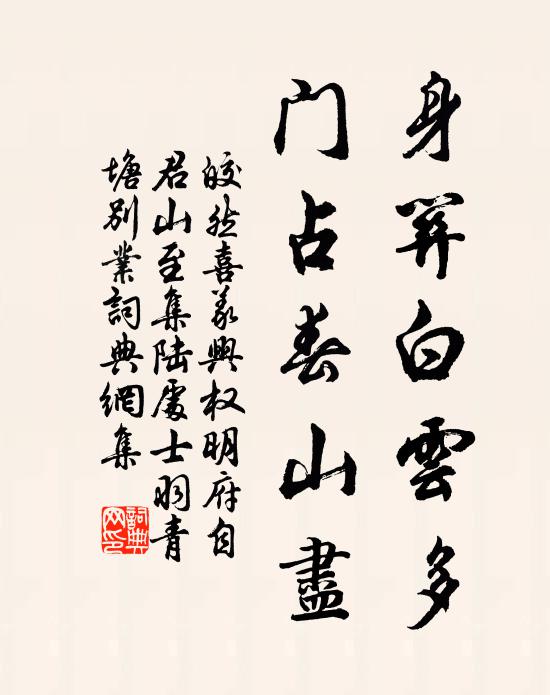 身关白雲多
门占春山盡
皎然喜義興权明府自
君山至集陸處士羽青
塘别業詞典網集
詞典网印